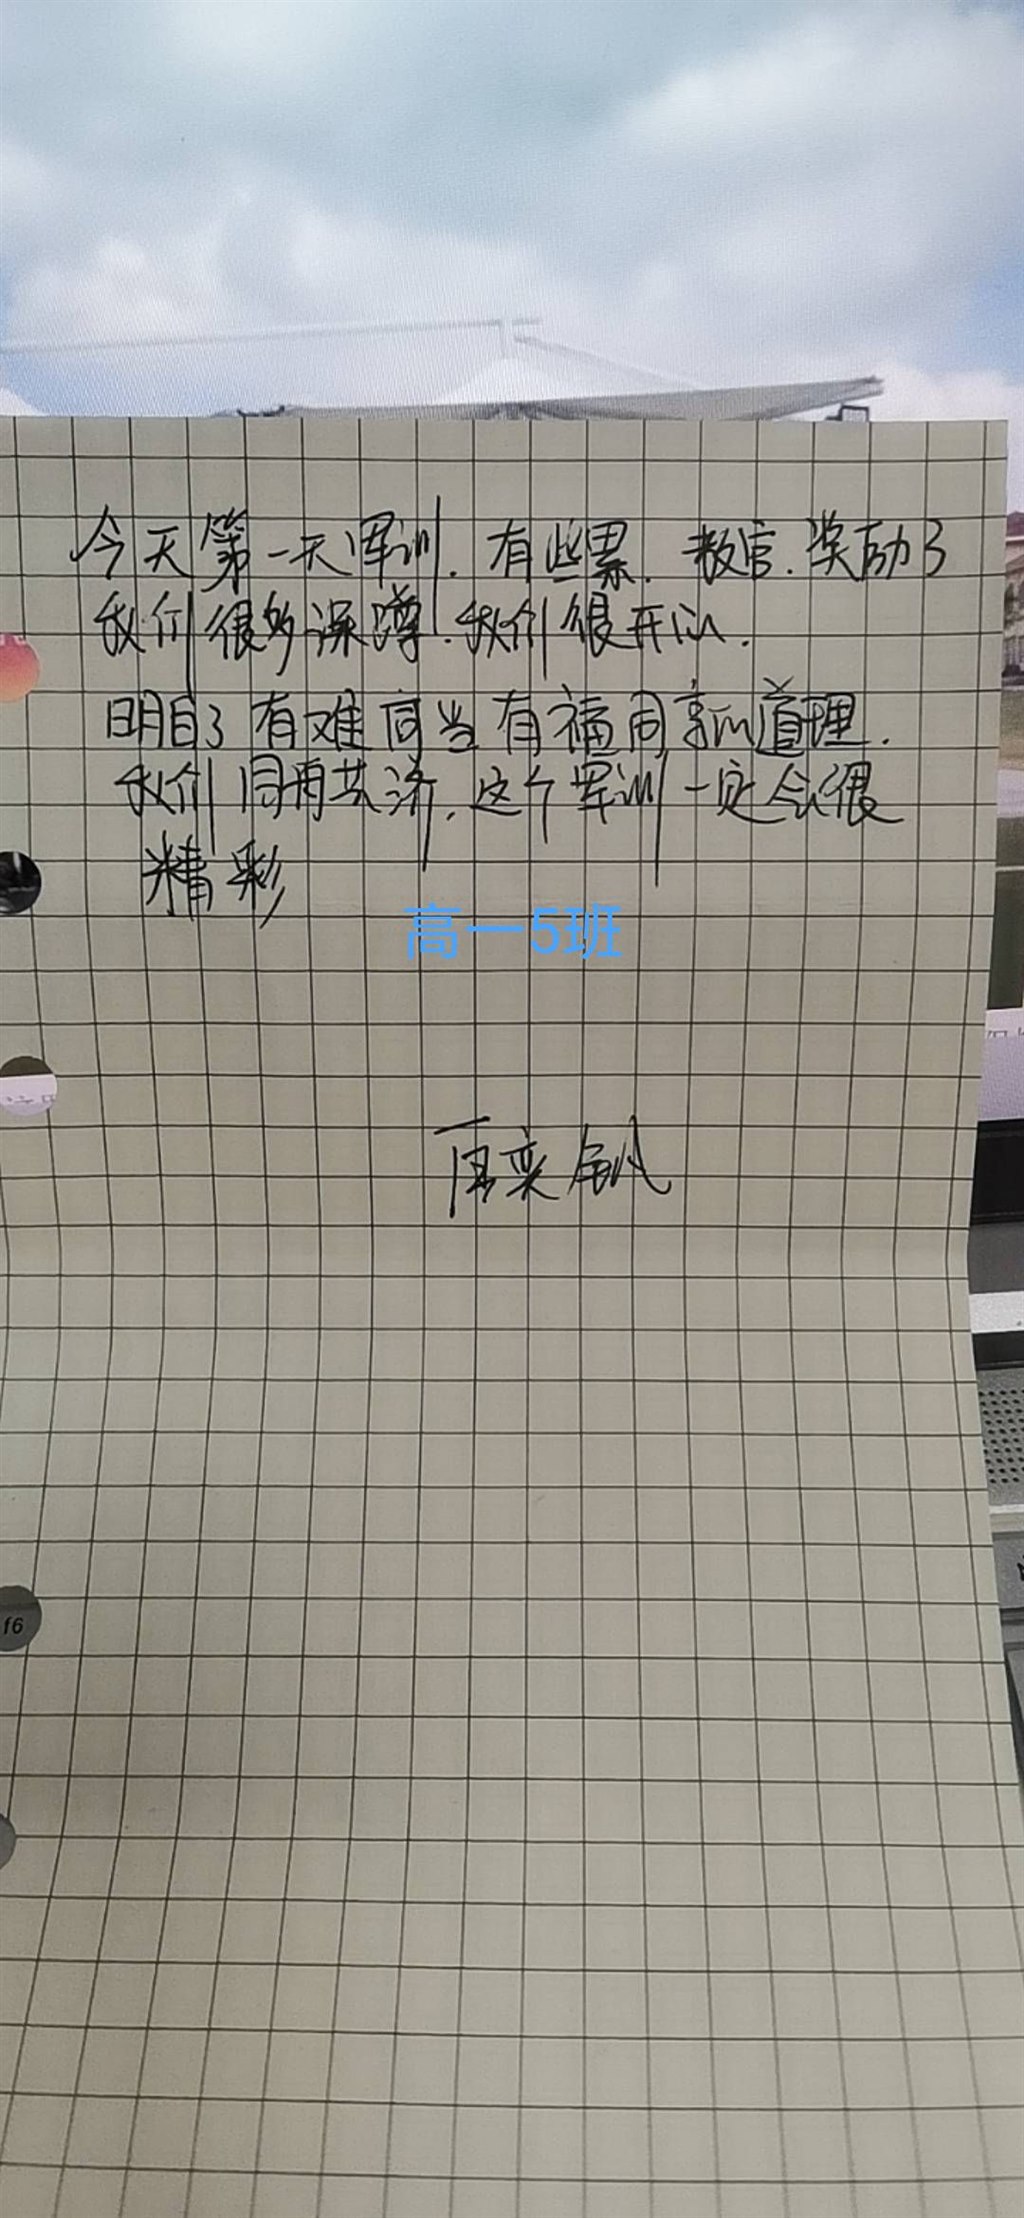 今天第一天军训.有些累.教官.奖励了
我们很多深蹲.我们很开心.
明白了有难同当有福同享的道理.
我们同舟共济.这个军训一定会很
精彩
高一5班
f6